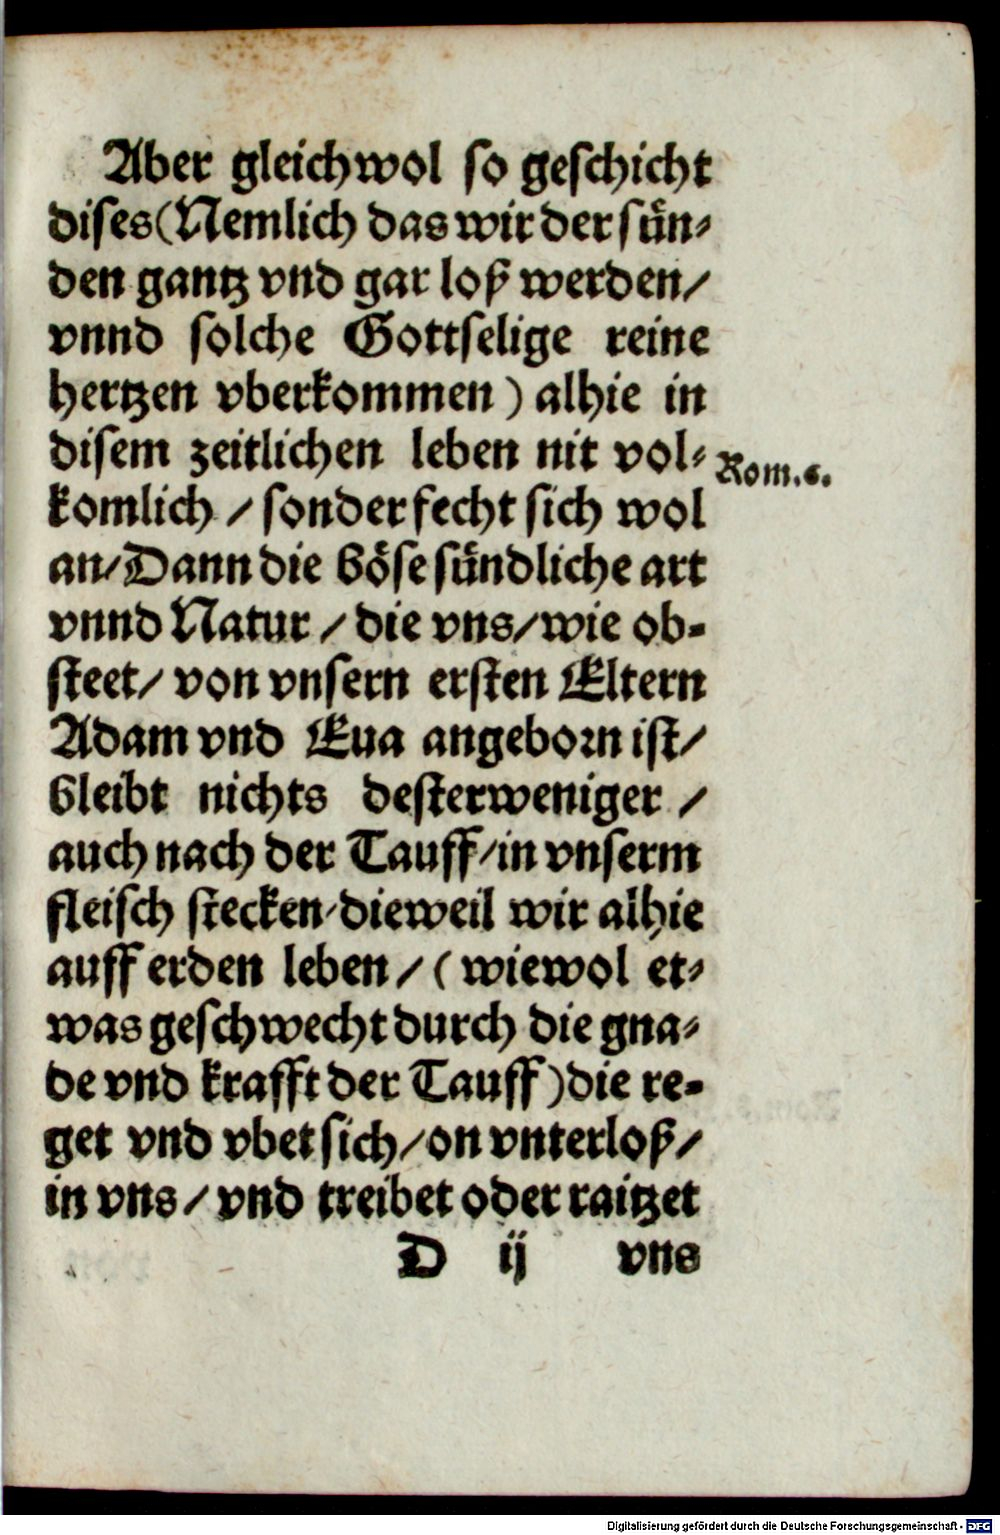 Aber gleichwol so geschicht
dises (Nemlich das wir der sün⸗
den gantz vnd gar loß werden /
vnnd solche Gottselige reine
hertzen vberkommen) alhie in
disem zeitlichen leben nit vol⸗
Rom. 6.
komlich / sonder fecht sich wol
an / Dann die böse sündliche art
vnnd Natur / die vns / wie ob⸗
steet / von vnsern ersten Eltern
Adam vnd Eua angeborn ist /
bleibt nichts desterweniger /
auch nach der Tauff / in vnserm
fleisch stecken / dieweil wir alhie
auff erden leben / (wiewol et⸗
was geschwecht durch die gna⸗
de vnd krafft der Tauff) die re⸗
get vnd vbet sich / on vnterloß /
in vns / vnd treibet oder raitzet
D ij vns
Digitalisierung gefördert durch die Deutsche Forschungsgemeinschaft - DFG